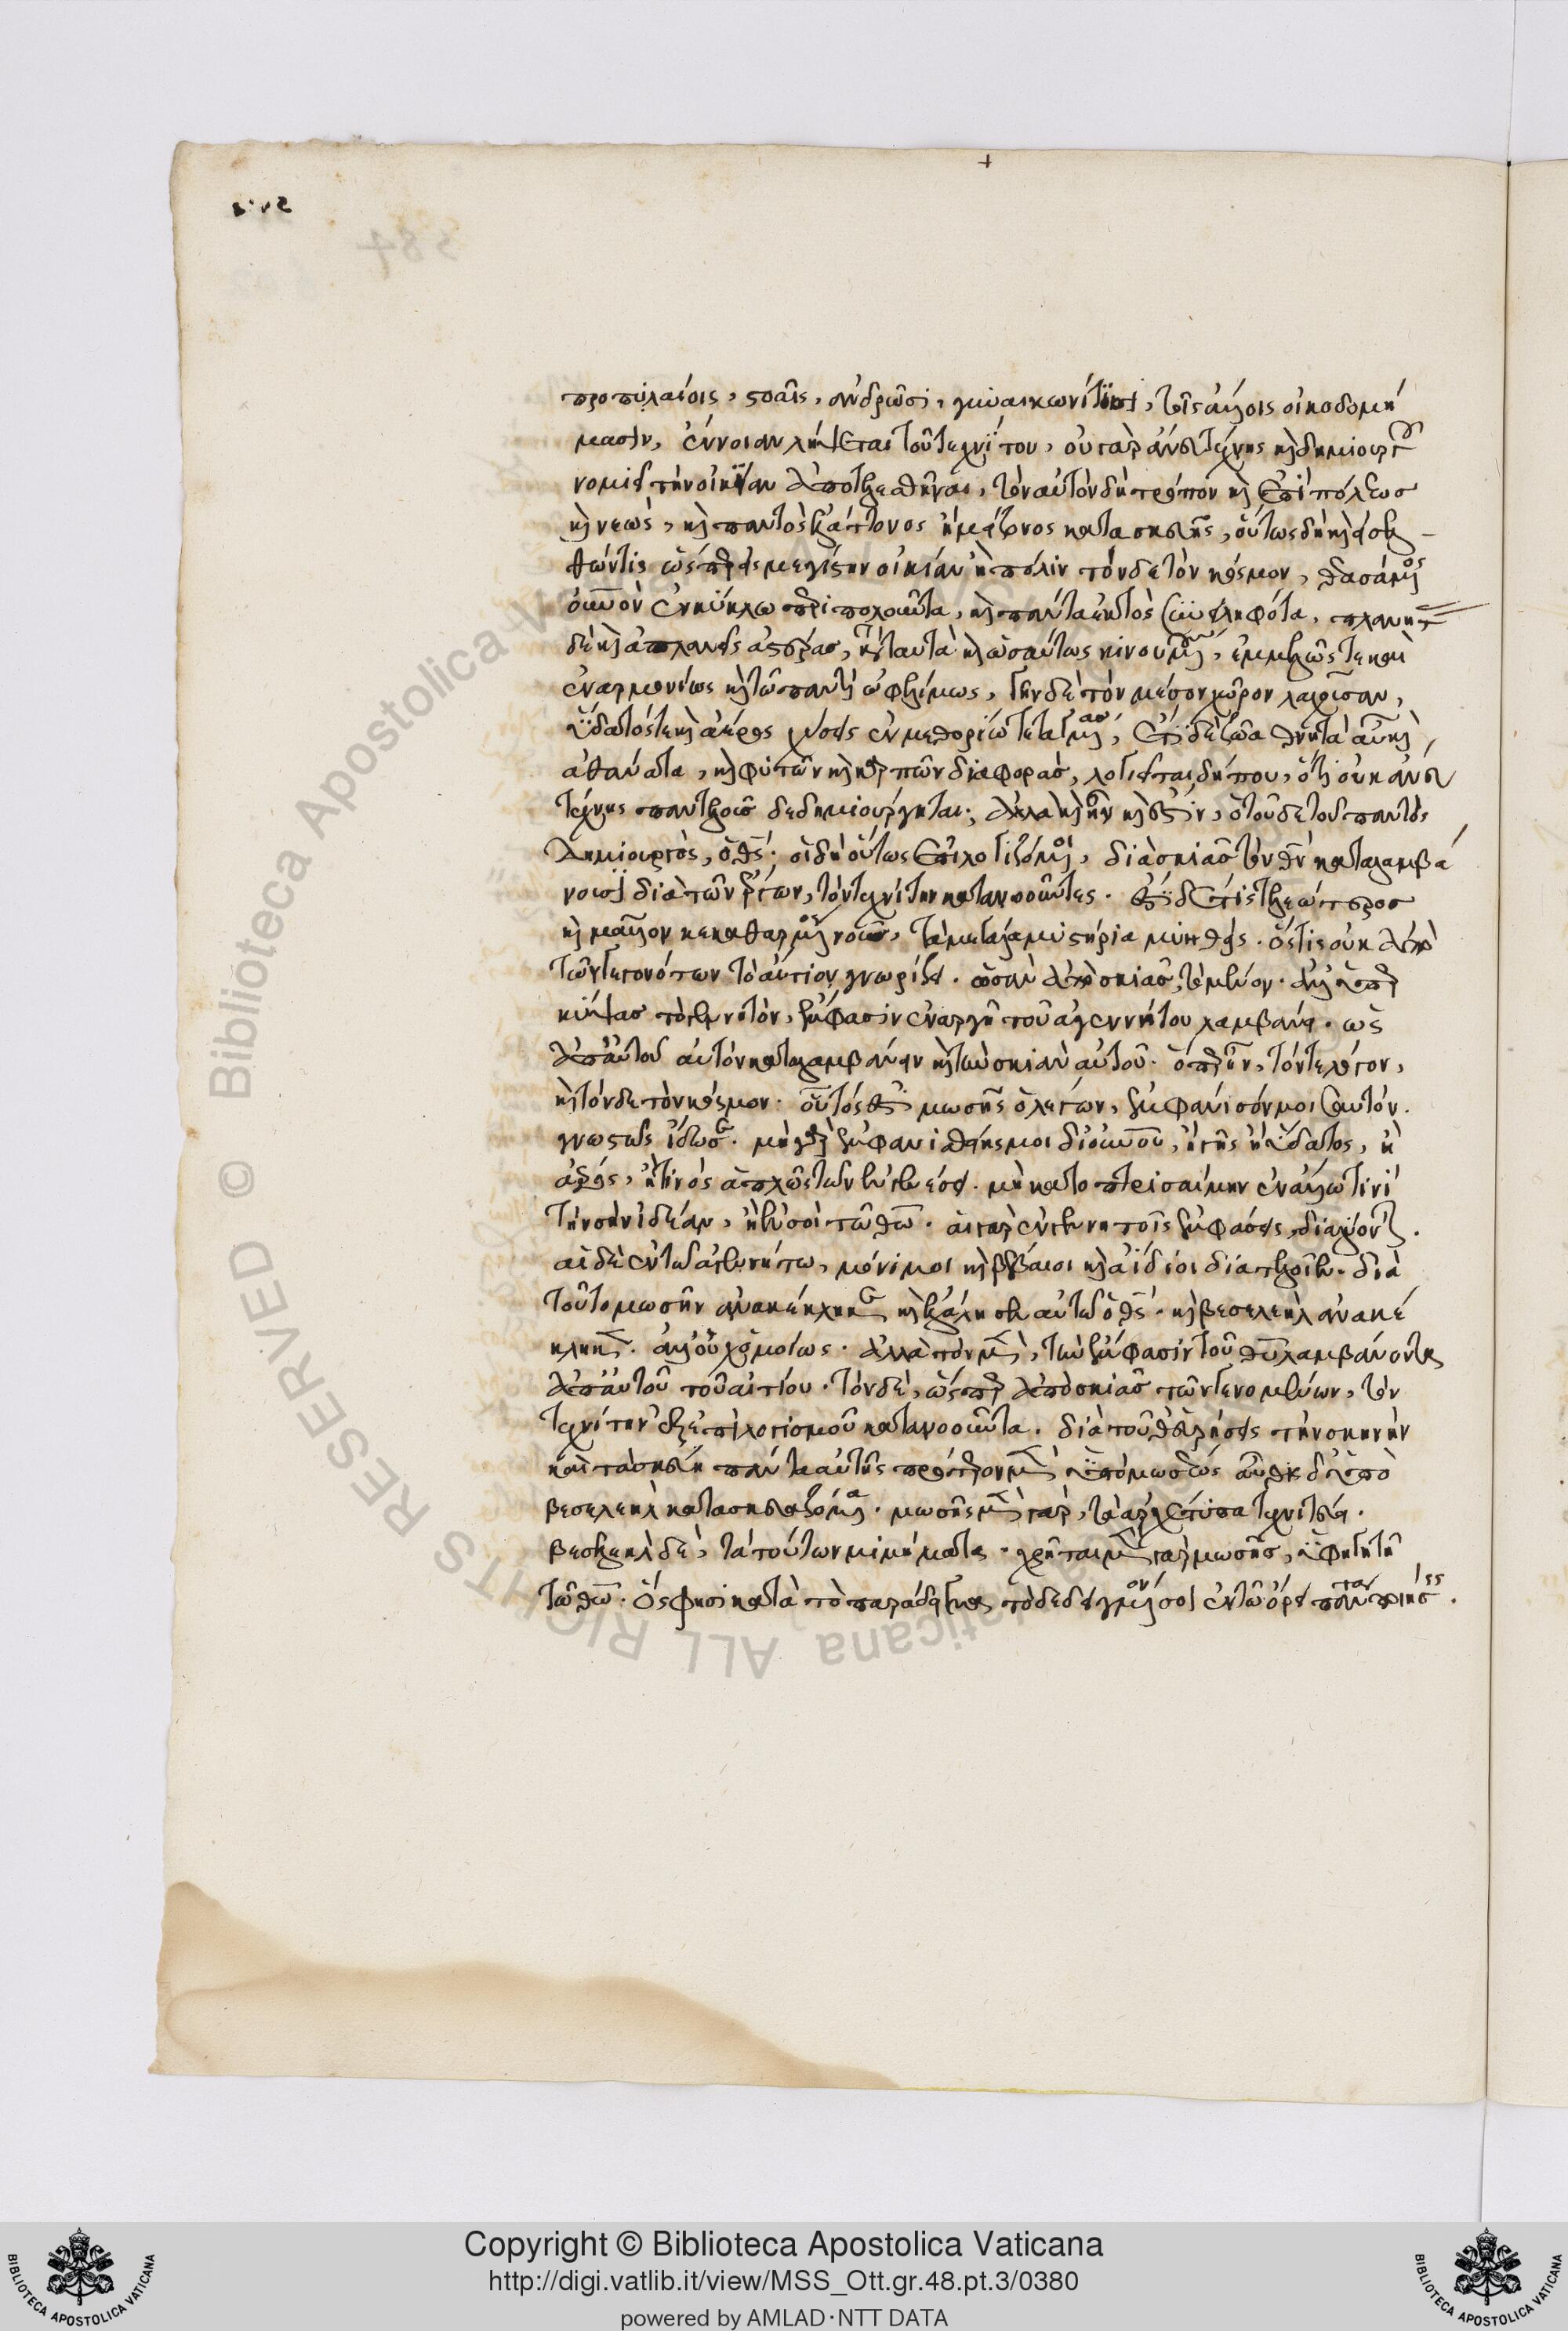 προπυλαίοις, στοαῖς, ἀνδρῶσι, γυναικωνίτισι, τοῖς ἄλλοις οἰκοδομή
μασιν, ἔννοιαν λήψεται τοῦ τεχνίτου, οὐ γὰρ ἄνευ τέχνης καὶ δημιουργοῦ
νομιεῖ τὴν οἰκίαν ἀποτελεσθῆναι, τὸν αὐτὸν δὴ τρόπον καὶ ἐπὶ πόλεως
καὶ νεὼς, καὶ παντὸς ἐλάττονος ἢ μείζονος κατασκευῆς, οὕτως δὴ καὶ εἰσελ-
θών τις ὥσπερ εἰς μεγίστην οἰκίαν ἢ πόλιν τόνδε τὸν κόσμον, θεασάμενος
οὐρανὸν ἐν κύκλω περιπολοῦντα, καὶ πάντα ἐντὸς συνειληφότα, πλανήτας
δὲ καὶ ἀπλανεῖς ἀστέρας, κατὰ ταυτὰ καὶ ὡσαύτως κινουμένους, ἐμμελῶς τε καὶ
ἐναρμονίως καὶ τῶ παντὶ ὠφελίμως, γῆν δὲ τὸν μέσον χῶρον λαχοῦσαν,
ὕδατός τε καὶ ἀέρος χύσεις ἐν μεθορίω τεταγμένας, ἔτι δὲ ζῶα θνητὰ αὖ καὶ
ἀθάνατα, καὶ φυτῶν καὶ καρπῶν διαφορὰς, λογιεῖται δήπου, ὅτι οὐκ ἄνευ
τέχνης παντελοῦς δεδημιούργηται· ἀλλὰ καὶ ἦν καὶ ἔστιν, ὁ τοῦδε τοῦ παντὸς
δημιουργὸς, ὁ θεός· οἱ δὴ οὕτως ἐπιλογιζόμενοι, διὰ σκιᾶς τὸν θεὸν καταλαμβά
νουσι διὰ τῶν ἔργων, τὸν τεχνίτην κατανοοῦντες. ἔστι δέ τις τελεώτερος
καὶ μᾶλλον κεκαθαρμένος νοῦς, τὰ μεγάλα μυστήρια μυηθείς. ὅστις οὐκ ἀπὸ
τῶν γεγονότων τὸ αἴτιον γνωρίζει. ὡς ἂν ἀπὸ σκιᾶς, τὸ μένον. ἀλλ' ὑπερ
κύψας τὸ γενητὸν, ἔμφασιν ἐναργῆ τοῦ ἀγεννήτου λαμβάνει. ὡς
ἀπ' αὐτοῦ αὐτὸν καταλαμβάνειν καὶ τὴν σκιὰν αὐτοῦ. ὅπερ ἦν, τόν τε λόγον,
καὶ τόνδε τὸν κόσμον. οὗτός ἐστι μωσῆς ὁ λέγων, ἐμφάνισόν μοι σαυτόν.
γνωστῶς ἴδω σε. μὴ γὰρ ἐμφανισθείης μοι δι' οὐρανοῦ, ἢ γῆς ἢ ὕδατος, ἢ
ἀέρος, ἤ τινος ἁπλῶς τῶν ἐν γενέσει. μὴ κατοπτρισαίμην ἐν ἄλλω τινὶ
τὴν σὴν ἰδέαν, ἢ ἐν σοὶ τῶ θεῶ. αἱ γὰρ ἐν γενητοῖς ἐμφάσεις, διαλύονται.
αἱ δὲ ἐν τῶ ἀγενήτω, μόνιμοι καὶ βέβαιοι καὶ ἀΐδιοι διατελοῖεν. διὰ
τοῦτο μωσῆν ἀνακέκληκε καὶ ἐλάλησεν αὐτῶ ὁ θεός. καὶ βεσελεὴλ ἀνακέ
κληκεν. ἀλλ' οὐχ ὁμοίως. ἀλλὰ τὸν μὲν, τὴν ἔμφασιν τοῦ θεοῦ λαμβάνοντα
ἀπ' αὐτοῦ τοῦ αἰτίου. τὸν δὲ, ὥσπερ ἀπὸ σκιᾶς τῶν γενομένων, τὸν
τεχνίτην ἐξ ἐπιλογισμοῦ κατανοοῦντα. διὰ τοῦθ' εὑρήσεις τὴν σκηνὴν
καὶ τὰ σκεύη πάντα αὐτῆς πρότερον μὲν ὑπὸ μωσέως αὖθις δ' ὑπὸ
βεσελεὴλ κατασκευαζόμενα. μωσῆς μὲν γὰρ, τὰ ἀρχέτυπα τεχνιτεύει.
βεσελεὴλ δὲ, τὰ τούτων μιμήματα. χρῆται μὲν γὰρ μωσῆς, ὑφηγητῆ
τῶ θεῶ. ὥς φησι κατὰ τὸ παράδειγμα τὸ δεδειγμένον σοι ἐν τῶ ὄρει πάντα ποιήσεις.
Copyright © Biblioteca Apostolica Vaticana
http://digi.vatlib.it/view/MSS_Ott.gr.48.pt.3/0380
powered by AMLAD·NTT DATA
© Biblioteca Apostolica Vaticana ALL RIGHTS RESERVED
BIBLIOTECA APOSTOLICA VATICANA
BIBLIOTECA APOSTOLICA VATICANA